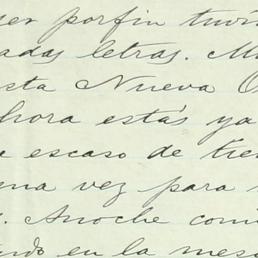 ser por fin tuvi
adas letras. M
sta Nueva O
hora estás ya
a escaso de tie
na vez para
. Anoche comi
ndo en la mesa